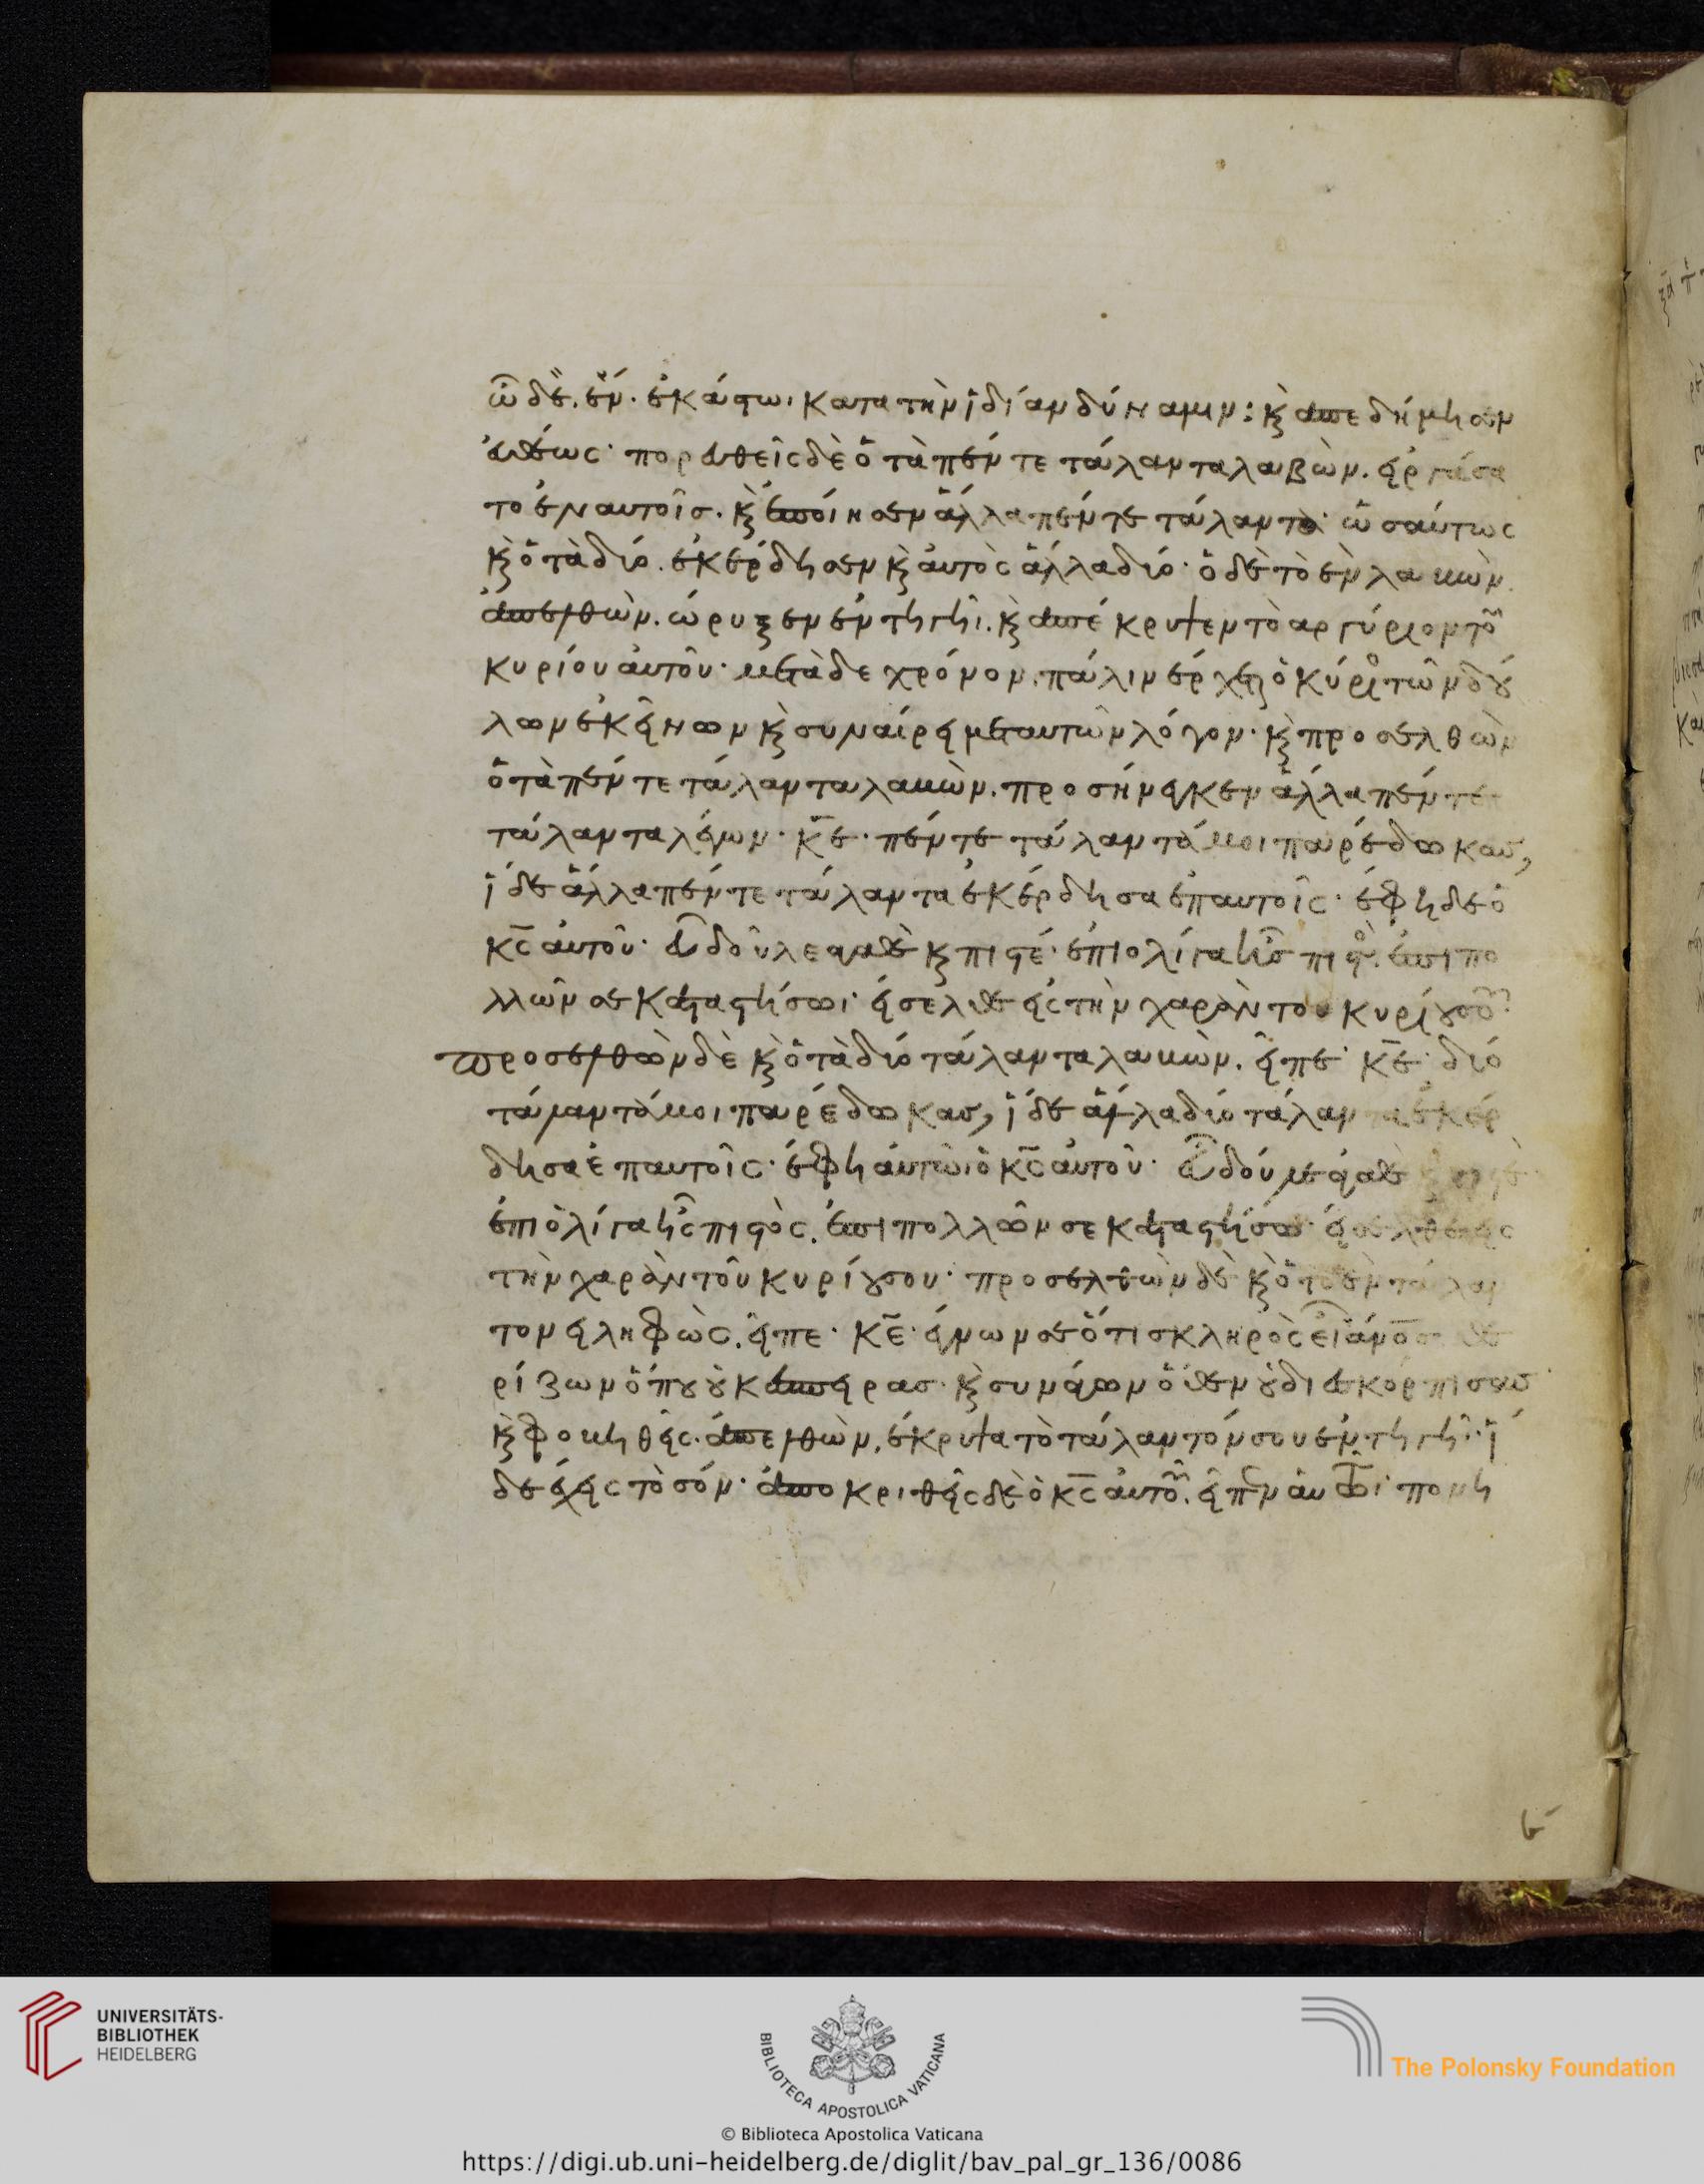 ᾧ δὲ ἕν. ἑκάστω. κατὰ τὴν ἰδίαν δύναμιν: κ̀ ἀπεδήμησεν
εὐθέως· πορευθεὶς δὲ ὁ τὰ πέντε τάλαντα λαβὼν. εἰργάσα
το ἐν αὐτοῖσ. κ̀ ἐποίησεν ἄλλα πέντε τάλαντα· ὡσαύτως
κ̀ ὁ τὰ δύο. ἐκέρδησεν κ̀ αὐτὸς ἄλλα δύο· ὁ δὲ τὸ ἓν λαβὼν
ἀπελθὼν. ὤρυξεν ἐν τῆ γῆ. κ̀ ἀπέκρυψεν τὸ ἀργύριον τοῦ
κυρίου αὐτοῦ· μετὰ δὲ χρόνον. πάλιν ἔρχεται ὁ κύριος τῶν δού
λων ἐκείνων κ̀ συναίρει μετ αυτῶν λόγον· κ̀ προσελθὼν
ὁ τὰ πέντε τάλαντα λαβὼν. προσήνεγκεν ἄλλα πέντε
τάλαντα λέγων· κ̅ε̅· πέντε τάλαντά μοι παρέδωκας,
ἴδε ἄλλα πέντε τάλαντα ἐκέρδησα ἐπ αυτοῖς· ἔφη δὲ ὁ
κ̅ς̅ αὐτοῦ· εὖ δοῦλε ἀγαθὲ κ̀ πιστέ· ἐπὶ ολίγα ἦς πιστός. ἐπὶ πο
λλῶν σε καταστήσω· εἴσελθε εἰς τὴν χαρὰν του κυρίου σοῦ·
προσελθὼν δὲ κ̀ ὁ τὰ δύο τάλαντα λαβὼν. εἶπε· κ̅ε̅· δύο
τάλαντά μοι παρέδωκας, ἴδε ἄλλα δύο τάλαντα ἐκέρ
δησα ἐπ αυτοῖς· ἔφη αὐτῶ ὁ κ̅ς̅ αὐτοῦ· εὖ δοῦλε ἀγαθὲ κ̀ πιστὲ
ἐπὶ ὀλίγα ἦς πιστὸς. ἐπὶ πολλῶν σε καταστήσω· εἴσελθε εἰς
τὴν χαρὰν τοῦ κυρίου σου· προσελθὼν δὲ κ̀ ὁ τὸ ἓν τάλαν
τον εἰληφὼς. εἶπε· κ̅ε̅· ἔγνων σε ὅτι σκληρὸς εἶ ἀν̅ο̅ς̅ θε
ρίζων ὅπου οὐκ ἔσπειρας· κ̀ συνάγων ὅθεν οὐ διεσκόρπισας·
κ̀ φοβηθεὶς. ἀπελθὼν. ἔκρυψα τὸ τάλαντόν σου ἐν τῆ γῆ· ἴ
δε ἔχεις τὸ σόν· ἀποκριθεὶς δὲ ὁ κ̅ς̅ αὐτοῦ. εἶπεν αὐτῶ· πονη
UNIVERSITÄTS-
BIBLIOTHEK
HEIDELBERG
BIBLIOTECA APOSTOLICA VATICANA
The Polonsky Foundation
© Biblioteca Apostolica Vaticana
https://digi.ub.uni-heidelberg.de/diglit/bav_pal_gr_136/0086